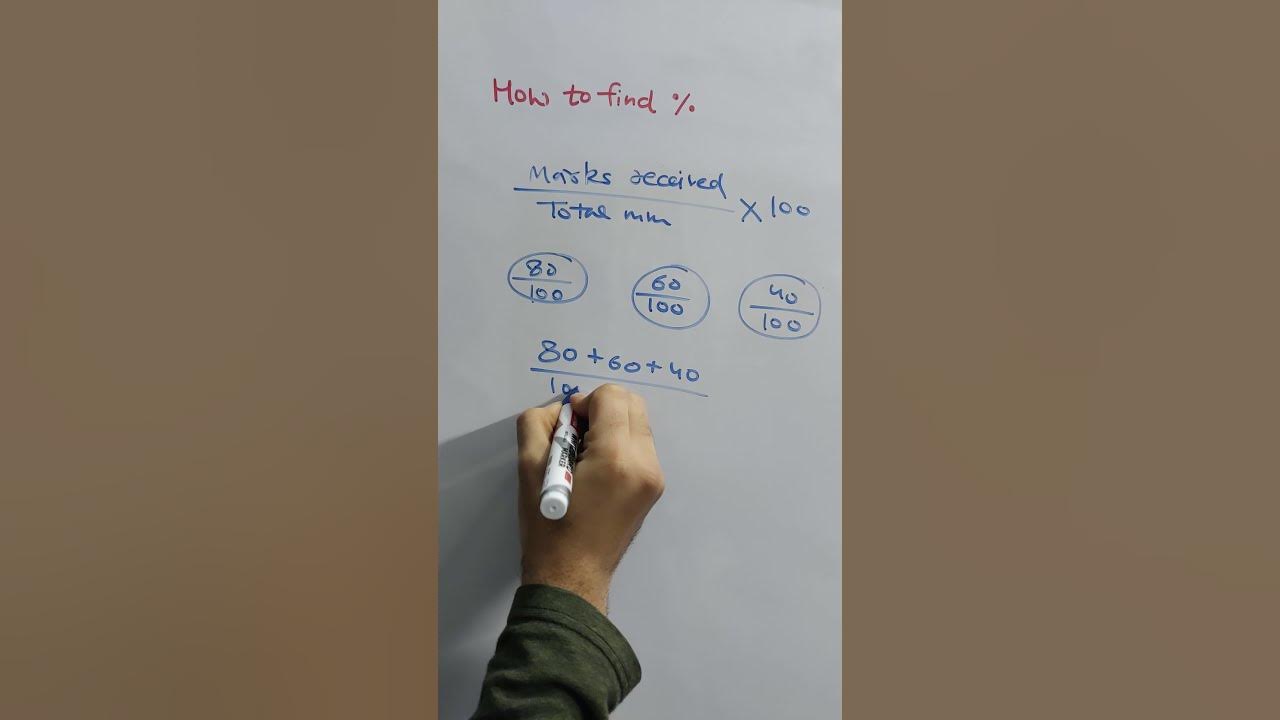 How to find %
Marks received
Total mm
× 100
80
100
60
100
40
100
80+60+40
10